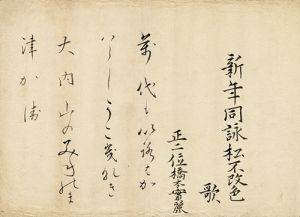 新年同詠松不改色
歌
正二位橋本實麗
萬代も以路はか
はらしうこ幾那き
大内山のみ年能ま
津か